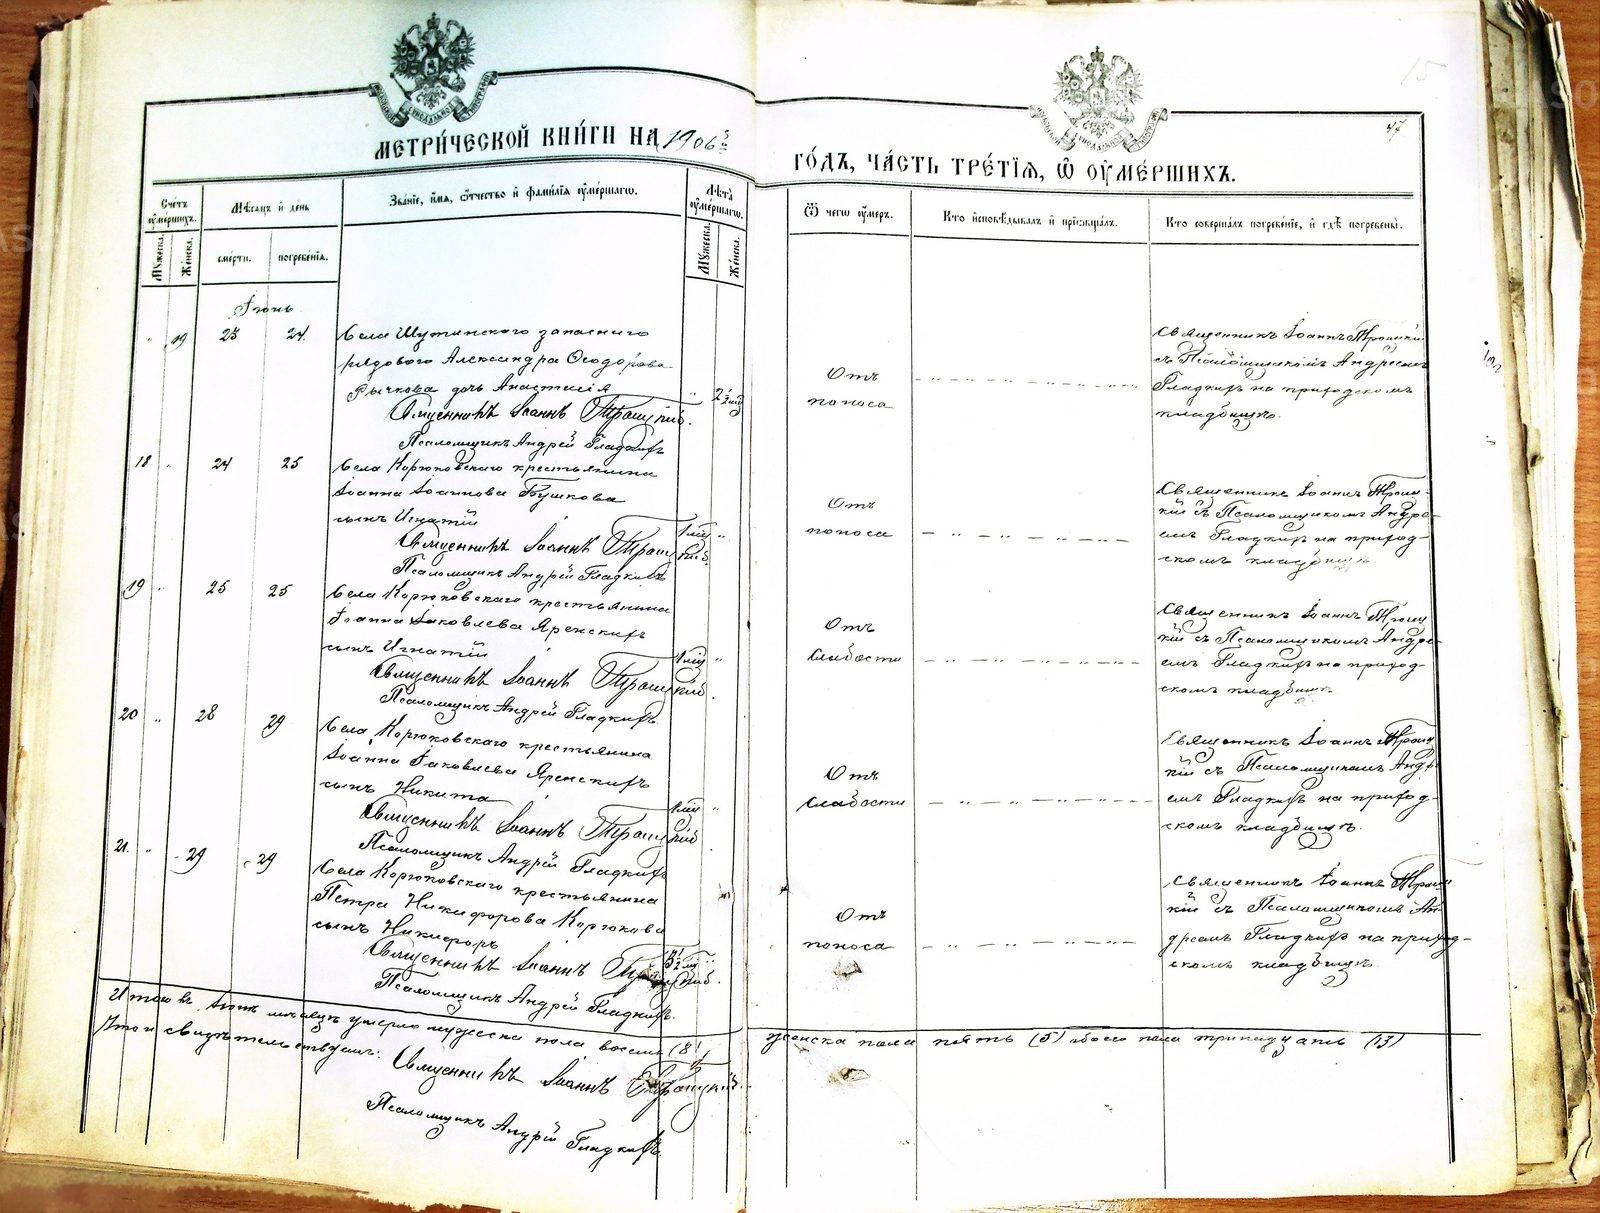 МЕТРИ́ЧЕСКОЙ КНИ́ГИ НА 1906й
ГО́ДЪ, ЧА́СТЬ ТРЕ́ТІЯ, Ѡ ОУМЕ́РШИХЪ.
15
47
Сче́тъ оуме́ршихъ.
Мѣ́сяцъ и де́нь
Зва́ніе, и́мя, ѻ́тчество и фами́лія оуме́ршагѡ.
Лѣ́та оуме́ршагѡ.
Ѿ чегѡ оу́меръ.
Кто̀ исповѣ́дывалъ и пріѡбща́лъ.
Кто̀ соверша́лъ погребе́ніе, и гдѣ̀ погребены̀.
Мꙋ́жеска.
Же́нска.
сме́рти.
погребе́нія.
Мꙋ́жеска.
Же́нска.
Іюнь
" 19 23 24. Села Шутинскаго запаснаго
рядового Александра Ѳеодорова
Рычкова дочь Анастасія " 2 1/2 мѣ
Священникъ Іоаннъ Троицкій.
Псаломщикъ Андрей Гладкихъ
Отъ
поноса
Священникъ Іоаннъ Троицкій
съ Псаломщикомъ Андреемъ
Гладкихъ на приходскомъ
кладбищѣ.
18 " 24 25 Села Корюковскаго крестьянина
Іоанна Іоаннова Бушкова
сынъ Игнатій 1 мѣ "
Священникъ Іоаннъ Троицкій.
Псаломщикъ Андрей Гладкихъ
Отъ
поноса
Священникъ Іоаннъ Троиц-
кій съ Псаломщикомъ Андре-
емъ Гладкихъ на приход-
скомъ кладбищѣ.
19 " 25 25 Села Корюковскаго крестьянина
Іоанна Іаковлева Яренскихъ
сынъ Игнатій 1 мѣ "
Священникъ Іоаннъ Троицкій.
Псаломщикъ Андрей Гладкихъ
Отъ
слабости
Священникъ Іоаннъ Троиц
кій съ Псаломщикомъ Андре-
емъ Гладкихъ на приход-
скомъ кладбищѣ
20 " 28 29 Села Корюковскаго крестьянина
Іоанна Іаковлева Яренскихъ
сынъ Никита 1 мѣ "
Священникъ Іоаннъ Троицкій
Псаломщикъ Андрей Гладкихъ
Отъ
слабости
Священникъ Іоаннъ Троиц
кій съ Псаломщикомъ Андре
емъ Гладкихъ на приход-
скомъ кладбищѣ.
21. " 29 29 Села Корюковскаго крестьянина
Петра Никифорова Корюкова
сынъ Никифоръ
Священникъ Іоаннъ Троицкій.
Псаломщикъ Андрей Гладкихъ.
Отъ
поноса
Священникъ Іоаннъ Троиц
кій съ Псаломщикомъ Ан
дреемъ Гладкихъ на приход-
скомъ кладбищѣ
Итого въ Іюнѣ мѣсяцѣ умерло мужеска пола восемь (8)
женска пола пять (5) обоего пола тринадцать (13)
Что и свидѣтельствуемъ:
Священникъ Іоаннъ Троицкій.
Псаломщикъ Андрей Гладкихъ.